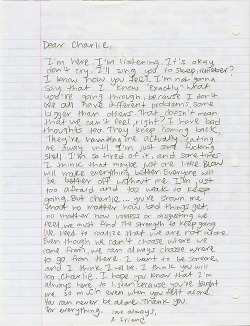 Dear Charlie,
I'm here. I'm listening. It's okay
don't cry. I'll sing you to sleep, remember?
I know how you feel. I'm not gonna
say that I know "exactly" what
you're going through, because I don't.
We all have different problems, some
bigger than others. That doesn't mean
that we can't feel, right? I have bad
thoughts too. They keep coming back.
They're haunting me, actually. Eating
me away until I'm just some fucking
shell. I'm so tired of it, and sometimes
I think that maybe just one little
will make everything better. Everyone will
be better off without me. I'm just
too afraid and too weak to keep
going. But charlie, you've shown me
that no matter how bad things get,
no matter how useless or disgusting we
feel, we must find the strength to keep going.
We need to realize that we are not alone.
Even though we can't choose where we
come from, we can always choose where
to go from there. I want to be someone,
and I think I will be. I think you will
too, Charlie. I hope you know that I'm
always here to listen because you've taught
me so much even when you felt alone.
You can never be alone. Thank you
for everything. Love always,
A friend